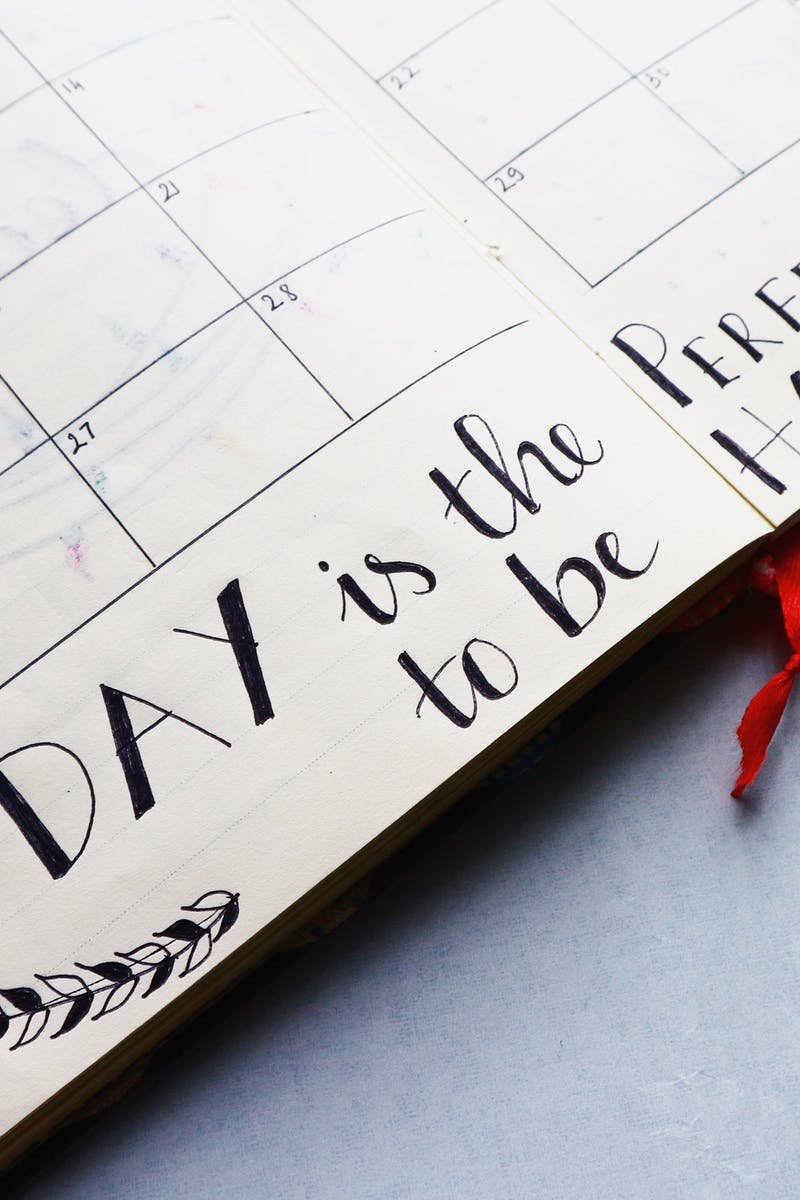 14
21
28
27
22
30
29
DAY is the
to be
PERFE
HA